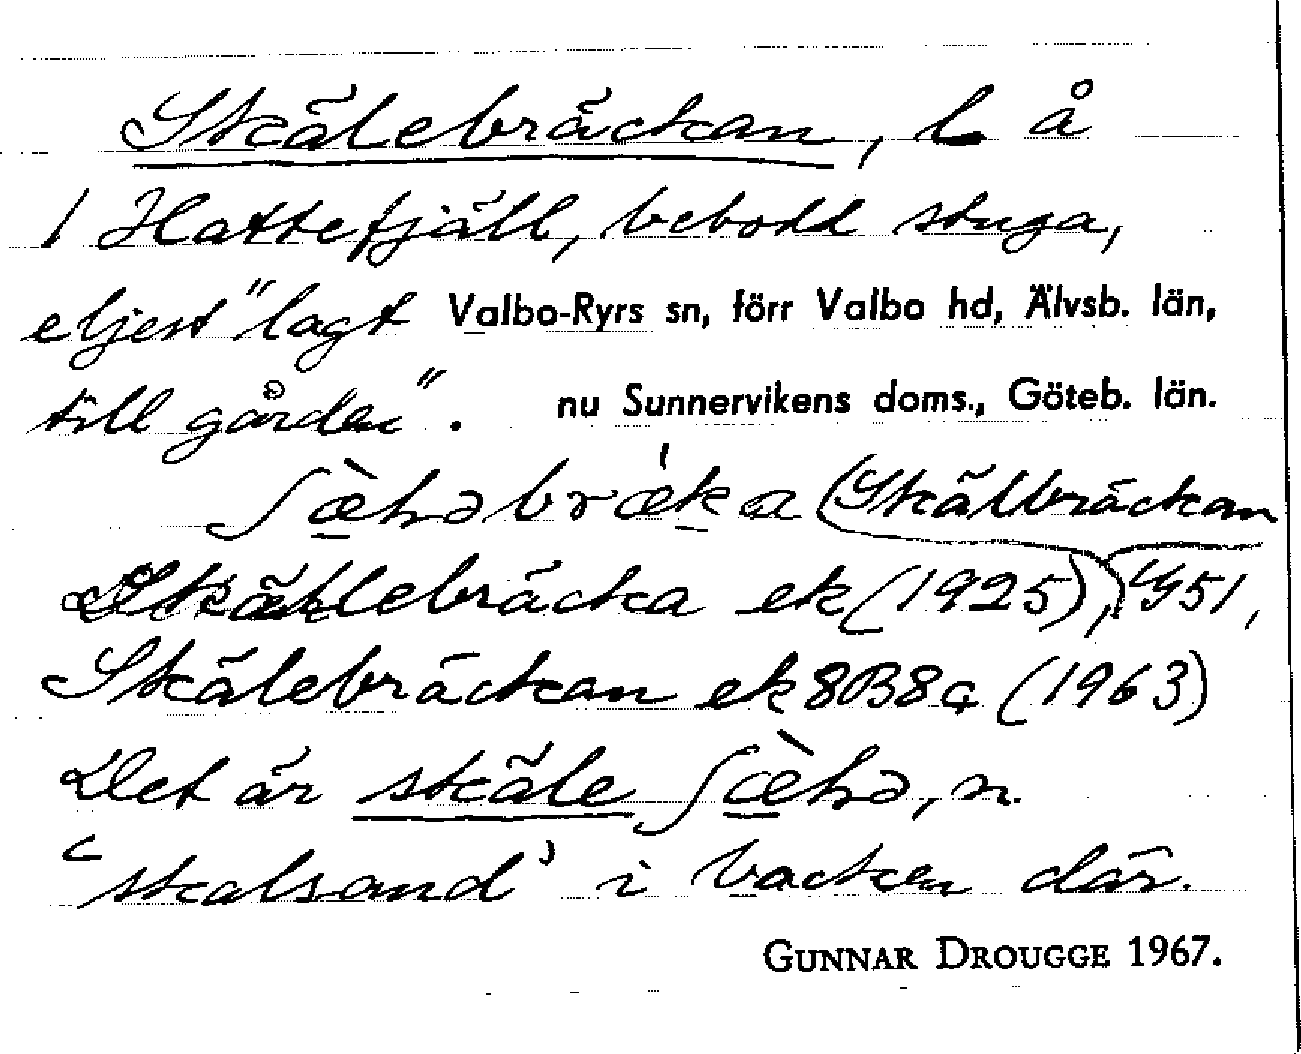 Skälebräckan, l å
1 Hattefjäll, bebodd stuga,
eljest "lagt Valbo-Ryrs sn, förr Valbo hd, Älvsb. län,
till gården". nu Sunnervikens doms., Göteb. län.
(Skälbräckan
Skällebräcka ek (1925), 1/451,
Skälebräckan ek 8B8c (1963)
Det är skäle ʃæ̀hə, n.
'skalsand' i backen där.
GUNNAR DROUGGE 1967.